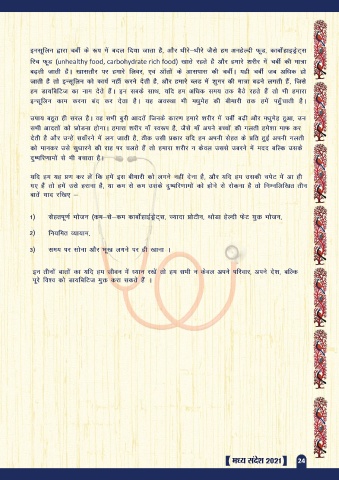 इनसूलिन द्वारा चर्बी के रूप में बदल दिया जाता है, और धीरे–धीरे जैसे हम अनहेल्दी फूड, कार्बोहाइड्रेट्स
रिच फूड (unhealthy food, carbohydrate rich food) खाते रहते है और हमारे शरीर में चर्बी की मात्रा
बढ़ती जाती है। खासतौर पर हमारे लिवर, एवं आँतों के आसपास की चर्बी। यही चर्बी जब अधिक हो
जाती है तो इन्सूलिन को कार्य नहीं करने देती है, और हमारे ब्लड में शुगर की मात्रा बढ़ने लगती हैं, जिसे
हम डायबिटिज का नाम देते हैं। इन सबके साथ, यदि हम अधिक समय तक बैठे रहते हैं तो भी हमारा
इन्सूलिन काम करना बंद कर देता है। यह अवस्था भी मधुमेह की बीमारी तक हमें पहुँचाती हैं।
उपाय बहुत ही सरल है। वह सभी बुरी आदतें जिनके कारण हमारे शरीर में चर्बी बढ़ी और मधुमेह हुआ, उन
सभी आदतों को छोड़ना होगा। हमारा शरीर माँ स्वरूप है, जैसे माँ अपने बच्चों की गलती हमेशा माफ कर
देती है और उन्हें सवॉरने में लग जाती है, ठीक उसी प्रकार यदि हम अपनी सेहत के प्रति हुई अपनी गलती
को मानकर उसे सुधारने की राह पर चलते हैं तो हमारा शरीर न केवल उससे उबरने में मदद बल्कि उसके
दुष्परिणामों से भी बचाता है।
यदि हम यह प्रण कर ले कि हमें इस बीमारी को लगने नहीं देना है, और यदि हम उसकी चपेट में आ ही
गए हैं तो हमें उसे हराना है, या कम से कम उसके दुष्परिणामों को होने से रोकना है तो निम्नलिखित तीन
बातें याद रखिए –
1) सेहतपूर्ण भोजन (कम–से–कम कार्बोहाईड्रेट्स, ज्यादा प्रोटीन, थोडा हेल्दी फेट युक्त भोजन,
2) नियमित व्यायाम,
3) समय पर सोना और भूख लगने पर ही खाना ।
इन तीनों बातों का यदि हम जीवन में ध्यान रखें तो हम सभी न केवल अपने परिवार, अपने देश, बल्कि
पूरे विश्व को डायबिटिज मुक्त करा सकते हैं ।
[ मध्य संदेश 2021 ] 24